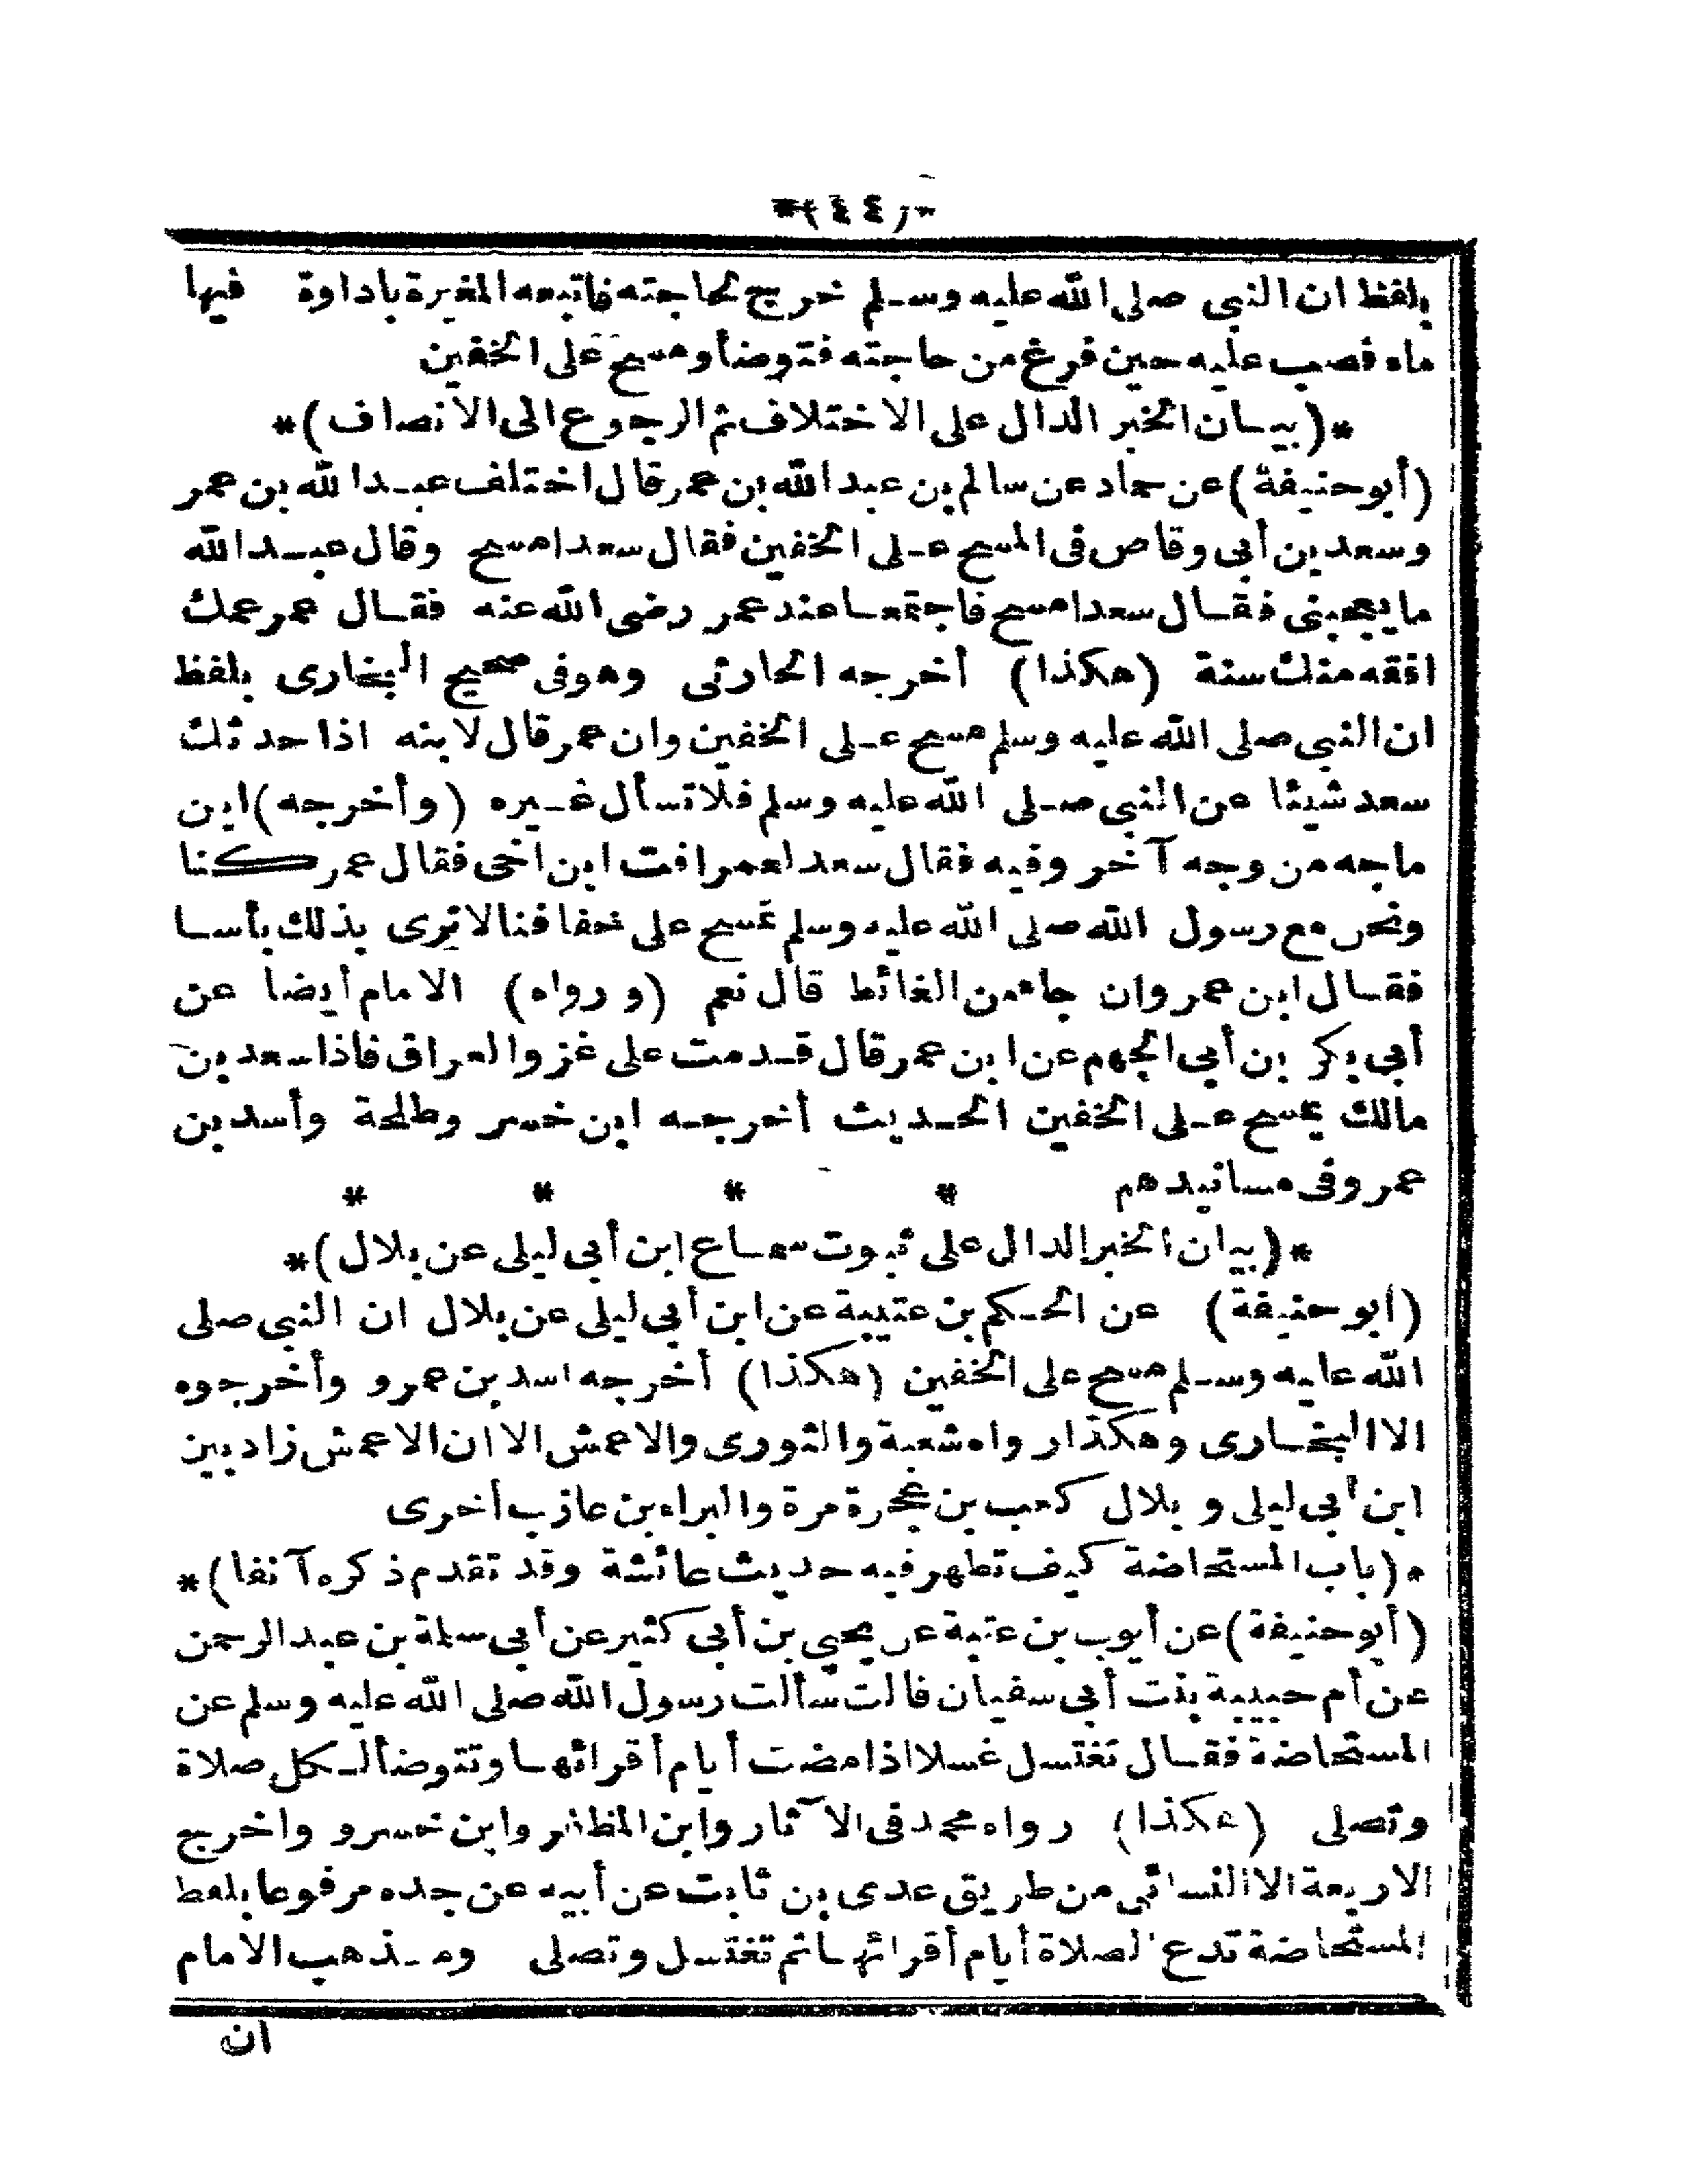 *(٤٤)*
بلفظ ان النبى صلى الله عليه وسلم خرج لحاجته فاتبعه المغيرة باداوة فيها
ماء فصب عليه حين فرغ من حاجته فتوضأ ومسح على الخفين
*(بيان الخبر الدال على الاختلاف ثم الرجوع الى الانصاف)*
(أبو حنيفة) عن حماد عن سالم بن عبد الله بن عمر قال اختلف عبد الله بن عمر
وسعد بن أبى وقاص فى المسح على الخفين فقال سعد امسح وقال عبد الله
ما يعجبنى فقال سعد امسح فاجتمعا عند عمر رضى الله عنه فقال عمر عمك
افقه منك سنة (هكذا) أخرجه الحارثى وهو فى صحيح البخارى بلفظ
ان النبى صلى الله عليه وسلم مسح على الخفين وان عمر قال لابنه اذا حدثك
سعد شيئا عن النبى صلى الله عليه وسلم فلا تسأل غيره (وأخرجه) ابن
ماجه من وجه آخر وفيه فقال سعد لعمر افت ابن اخى فقال عمر كنا
ونحن مع رسول الله صلى الله عليه وسلم نمسح على خفافنا لا نرى بذلك بأسا
فقال ابن عمر وان جاء من الغائط قال نعم (ورواه) الامام أيضا عن
أبى بكر بن أبى الجهم عن ابن عمر قال قدمت على غزو العراق فاذا سعد بن
مالك يمسح على الخفين الحديث أخرجه ابن خسر وطلحة وأسد بن
عمر وفى مسانيدهم * * * *
*(بيان الخبر الدال على ثبوت سماع ابن أبى ليلى عن بلال)*
(أبو حنيفة) عن الحكم بن عتيبة عن ابن أبى ليلى عن بلال ان النبى صلى
الله عليه وسلم مسح على الخفين (هكذا) أخرجه اسد بن عمرو وأخرجوه
الا البخارى وهكذا رواه شعبة والثورى والاعمش الا ان الاعمش زاد بين
ابن أبى ليلى وبلال كعب بن عجرة مرة والبراء بن عازب أخرى
*(باب المستحاضة كيف تطهر فيه حديث عائشة وقد تقدم ذكره آنفا)*
(أبو حنيفة) عن أيوب بن عتبة عن يحيى بن أبى كثير عن أبى سلمة بن عبد الرحمن
عن أم حبيبة بنت أبى سفيان قالت سألت رسول الله صلى الله عليه وسلم عن
المستحاضة فقال تغتسل غسلا اذا مضت أيام أقرائها وتتوضأ لكل صلاة
وتصلى (هكذا) رواه محمد فى الآثار وابن المظفر وابن خسرو واخرج
الاربعة الا النسائى من طريق عدى بن ثابت عن أبيه عن جده مرفوعا بلفظ
المستحاضة تدع الصلاة أيام أقرائها ثم تغتسل وتصلى ومذهب الامام
ان